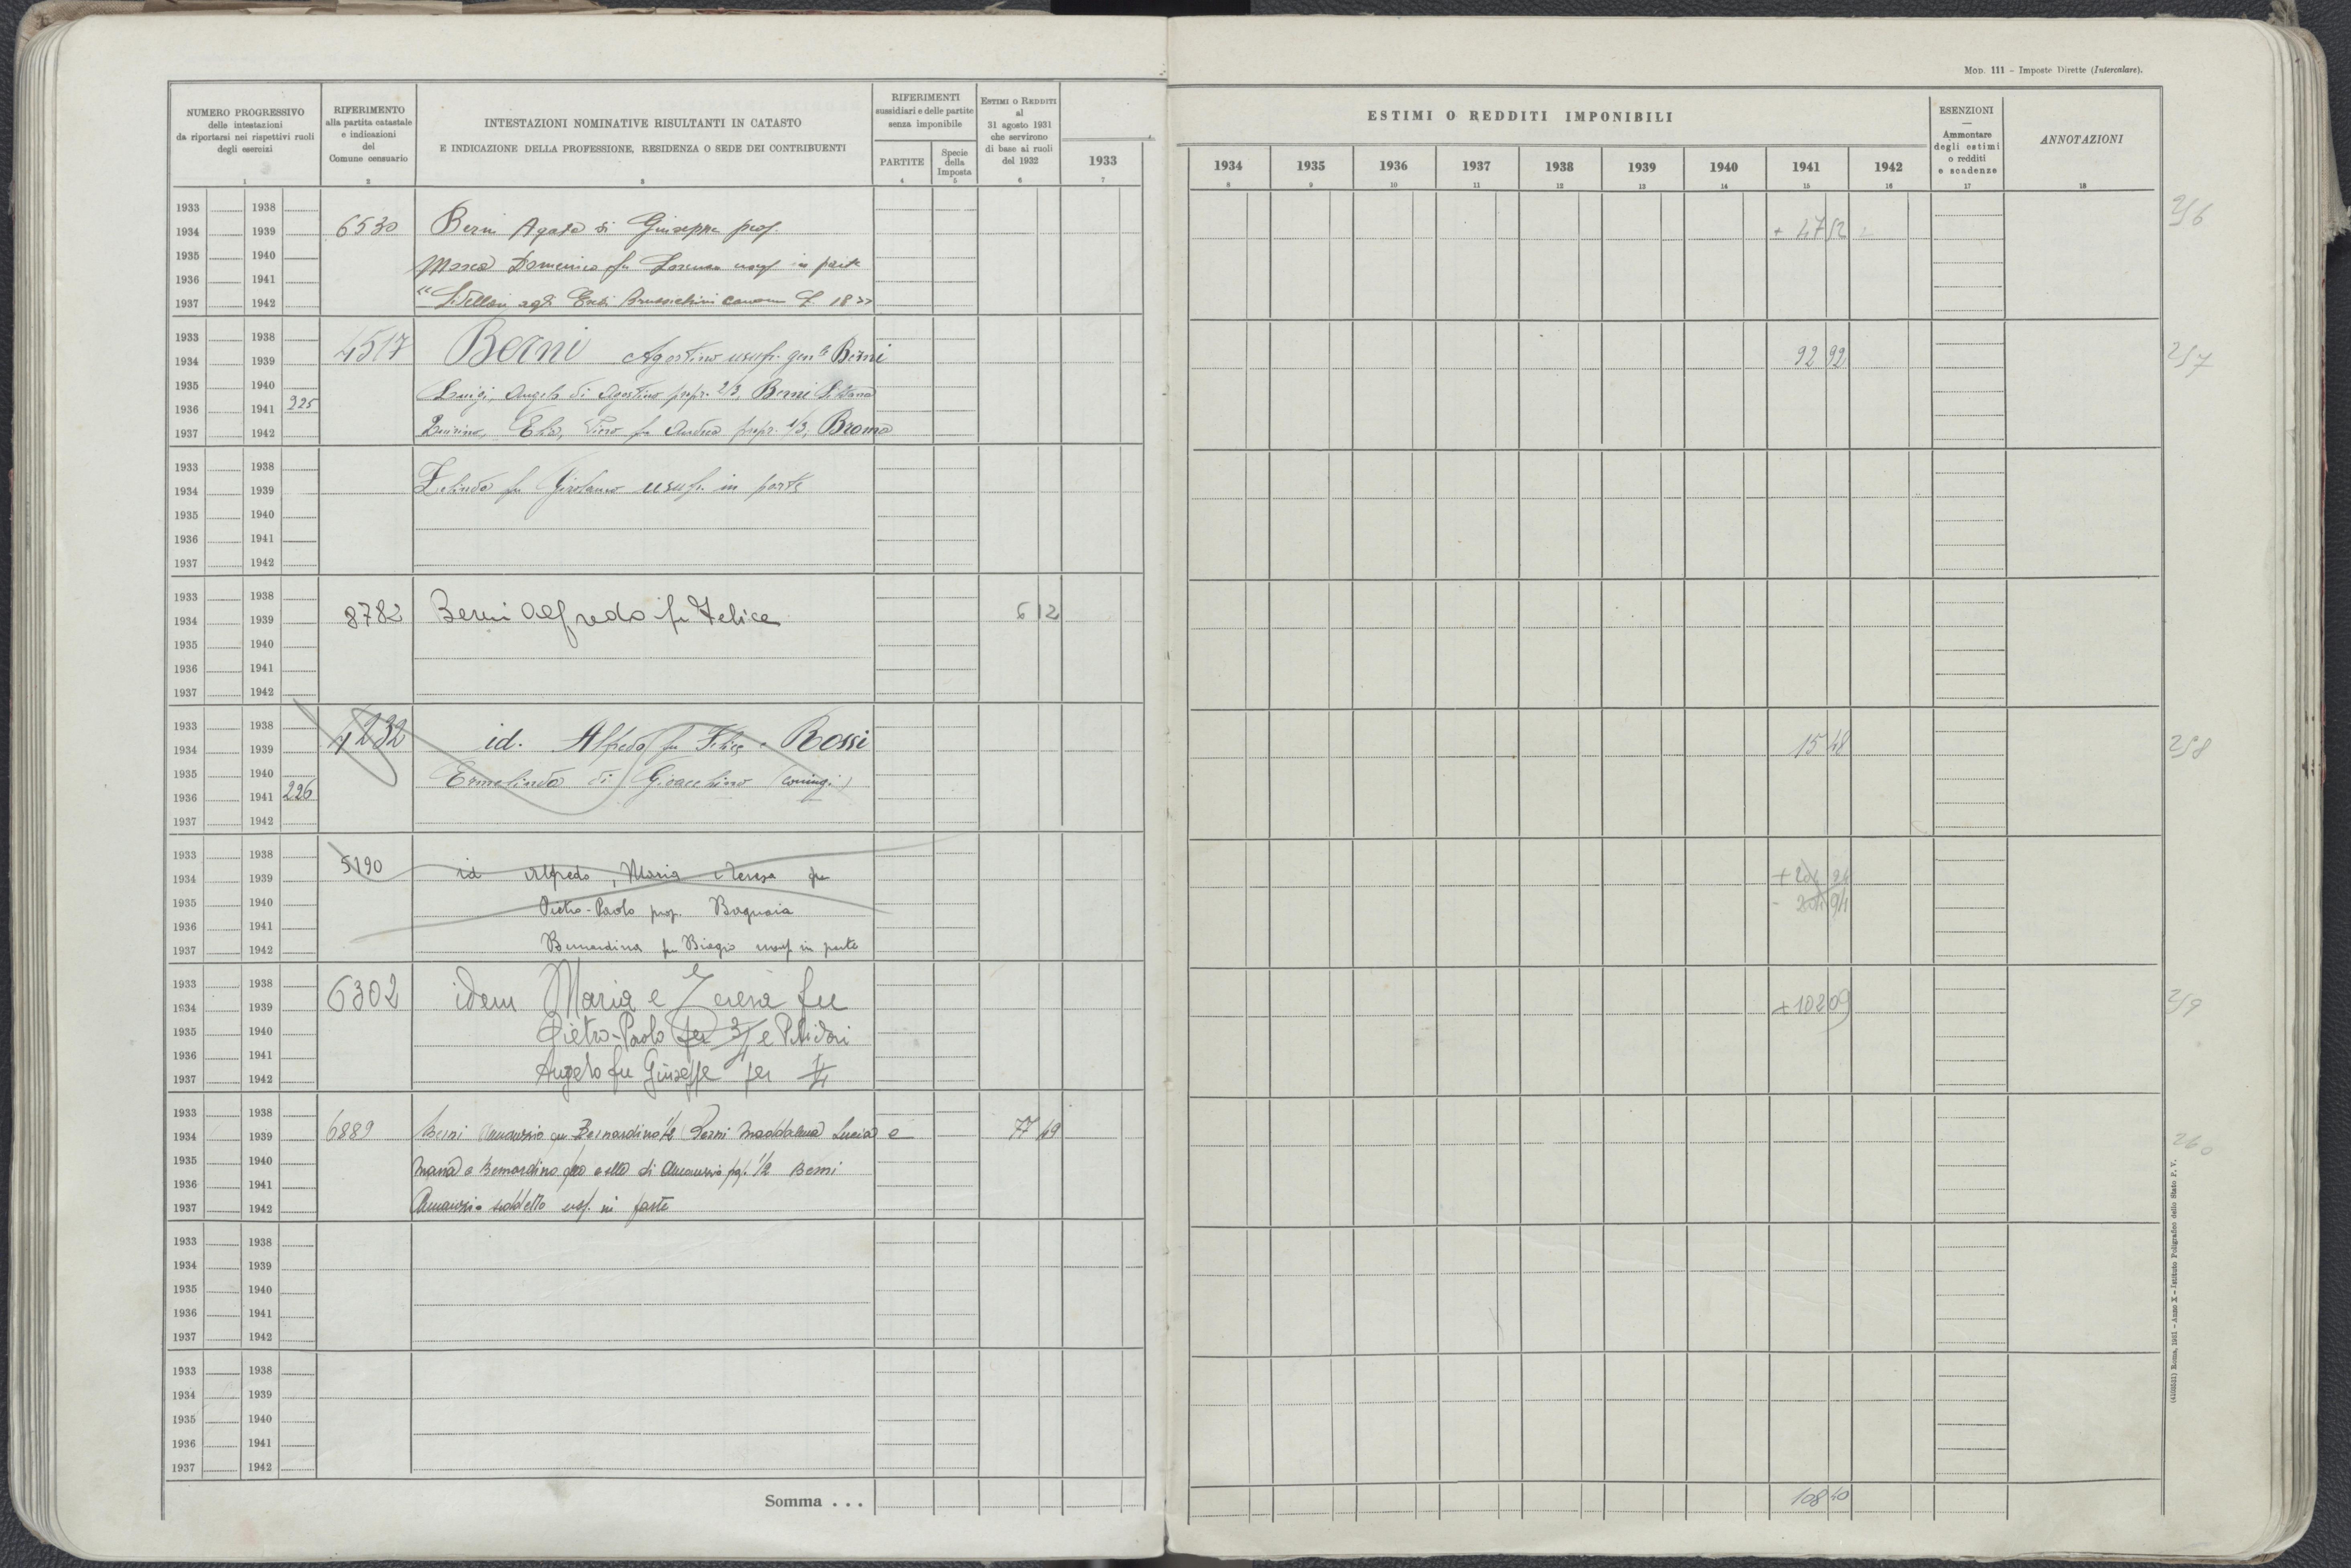 MOD. 111 – Imposte Dirette (Intercalare).
NUMERO PROGRESSIVO
delle intestazioni
da riportarsi nei rispettivi ruoli
degli esercizi
1
RIFERIMENTO
alla partita catastale
e indicazioni
del
Comune censuario
2
INTESTAZIONI NOMINATIVE RISULTANTI IN CATASTO
E INDICAZIONE DELLA PROFESSIONE, RESIDENZA O SEDE DEI CONTRIBUENTI
3
RIFERIMENTI
sussidiari e delle partite
senza imponibile
PARTITE
4
Specie
della
Imposta
5
ESTIMI O REDDITI
al
31 agosto 1931
che servirono
di base ai ruoli
del 1932
6
1933
7
ESTIMI O REDDITI IMPONIBILI
1934 1935 1936 1937 1938 1939 1940 1941 1942
8 9 10 11 12 13 14 15 16
ESENZIONI
—
Ammontare
degli estimi
o redditi
e scadenze
17
ANNOTAZIONI
18
1933 1938
1934 1939 6530 Berni Agata di Giuseppe prop. + 47 52 256
1935 1940 Domenico fu Lorenzo usuf in parte
1936 1941
1937 1942 "Livellari agli Eredi canone L. 18"
1933 1938
1934 1939 4517 Berni Agostino usufr. gen.le Berni 92 92 257
1935 1940 Luigi, Angelo di Agostino propr. 2/3, Berni
1936 1941 225
1937 1942 fu Andrea propr. 1/3; Broma
1933 1938
1934 1939 fu Girolamo usuf. in parte
1935 1940
1936 1941
1937 1942
1933 1938
1934 1939 8782 Berni Alfredo fu Felice 6 12
1935 1940
1936 1941
1937 1942
1933 1938
1934 1939 7232 id. Alfredo fu Felice e Rossi 15 48 258
1935 1940 Ermelinda di Gioacchino (coniugi)
1936 1941 226
1937 1942
1933 1938
1934 1939 5190 id Alfredo, Maria e Teresa fu
1935 1940 Pietro-Paolo prop. Bagnaia
1936 1941
1937 1942 Bernardina fu Biagio usuf in parte
1933 1938
1934 1939 6302 idem Maria e Teresa fu + 102 09 259
1935 1940 Pietro-Paolo per 3/4 e
1936 1941
1937 1942 Angelo fu Giuseppe per 1/4
1933 1938
1934 1939 6889 Berni Amanzio fu Bernardino 1/2 Berni Maddalena Lucia e 77 49 260
1935 1940 Maria e Bernardino di Amanzio 1/2 Berni
1936 1941
1937 1942 Amanzio suddetto usf. in parte
1933 1938
1934 1939
1935 1940
1936 1941
1937 1942
1933 1938
1934 1939
1935 1940
1936 1941
1937 1942
Somma . . . 108 40
(4103531) Roma, 1931 – Anno X – Istituto Poligrafico dello Stato P. V.